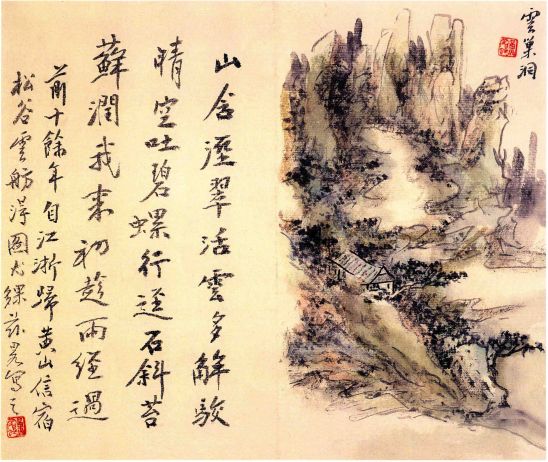 雲巢洞
山含溼翠活雲多解駮
晴空吐碧螺行逕石斜苔
蘚潤我來初趁雨經過
前十餘年自江浙歸黃山信宿
松谷雲舫得圖茲寫之